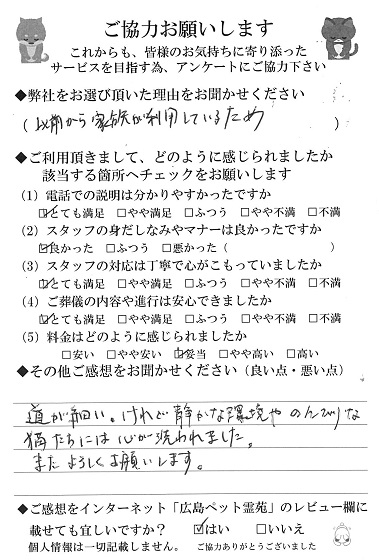 ご協力お願いします
これからも、皆様のお気持ちに寄り添った
サービスを目指す為、アンケートにご協力下さい
◆弊社をお選び頂いた理由をお聞かせください
(以前から家族が利用しているため)
◆ご利用頂きまして、どのように感じられましたか
該当する箇所へチェックをお願いします
(1)電話での説明は分かりやすかったですか
☑とても満足 □やや満足 □ふつう □やや不満 □不満
(2)スタッフの身だしなみやマナーは良かったですか
☑良かった □ふつう □悪かった(
(3)スタッフの対応は丁寧で心がこもっていましたか
☑とても満足 □やや満足 □ふつう □やや不満 □不満
(4)ご葬儀の内容や進行は安心できましたか
☑とても満足 □やや満足 □ふつう □やや不満 □不満
(5)料金はどのように感じられましたか
□安い □やや安い ☑妥当 □やや高い □高い
◆その他ご感想をお聞かせください(良い点・悪い点)
道が細い。けれど静かな環境やのんびりな
猫たちには心が洗われました。
またよろしくお願いします。
◆ご感想をインターネット「広島ペット霊苑」のレビュー欄に
載せても宜しいですか? ☑はい □いいえ
個人情報は一切記載しません。 ご協力ありがとうございました